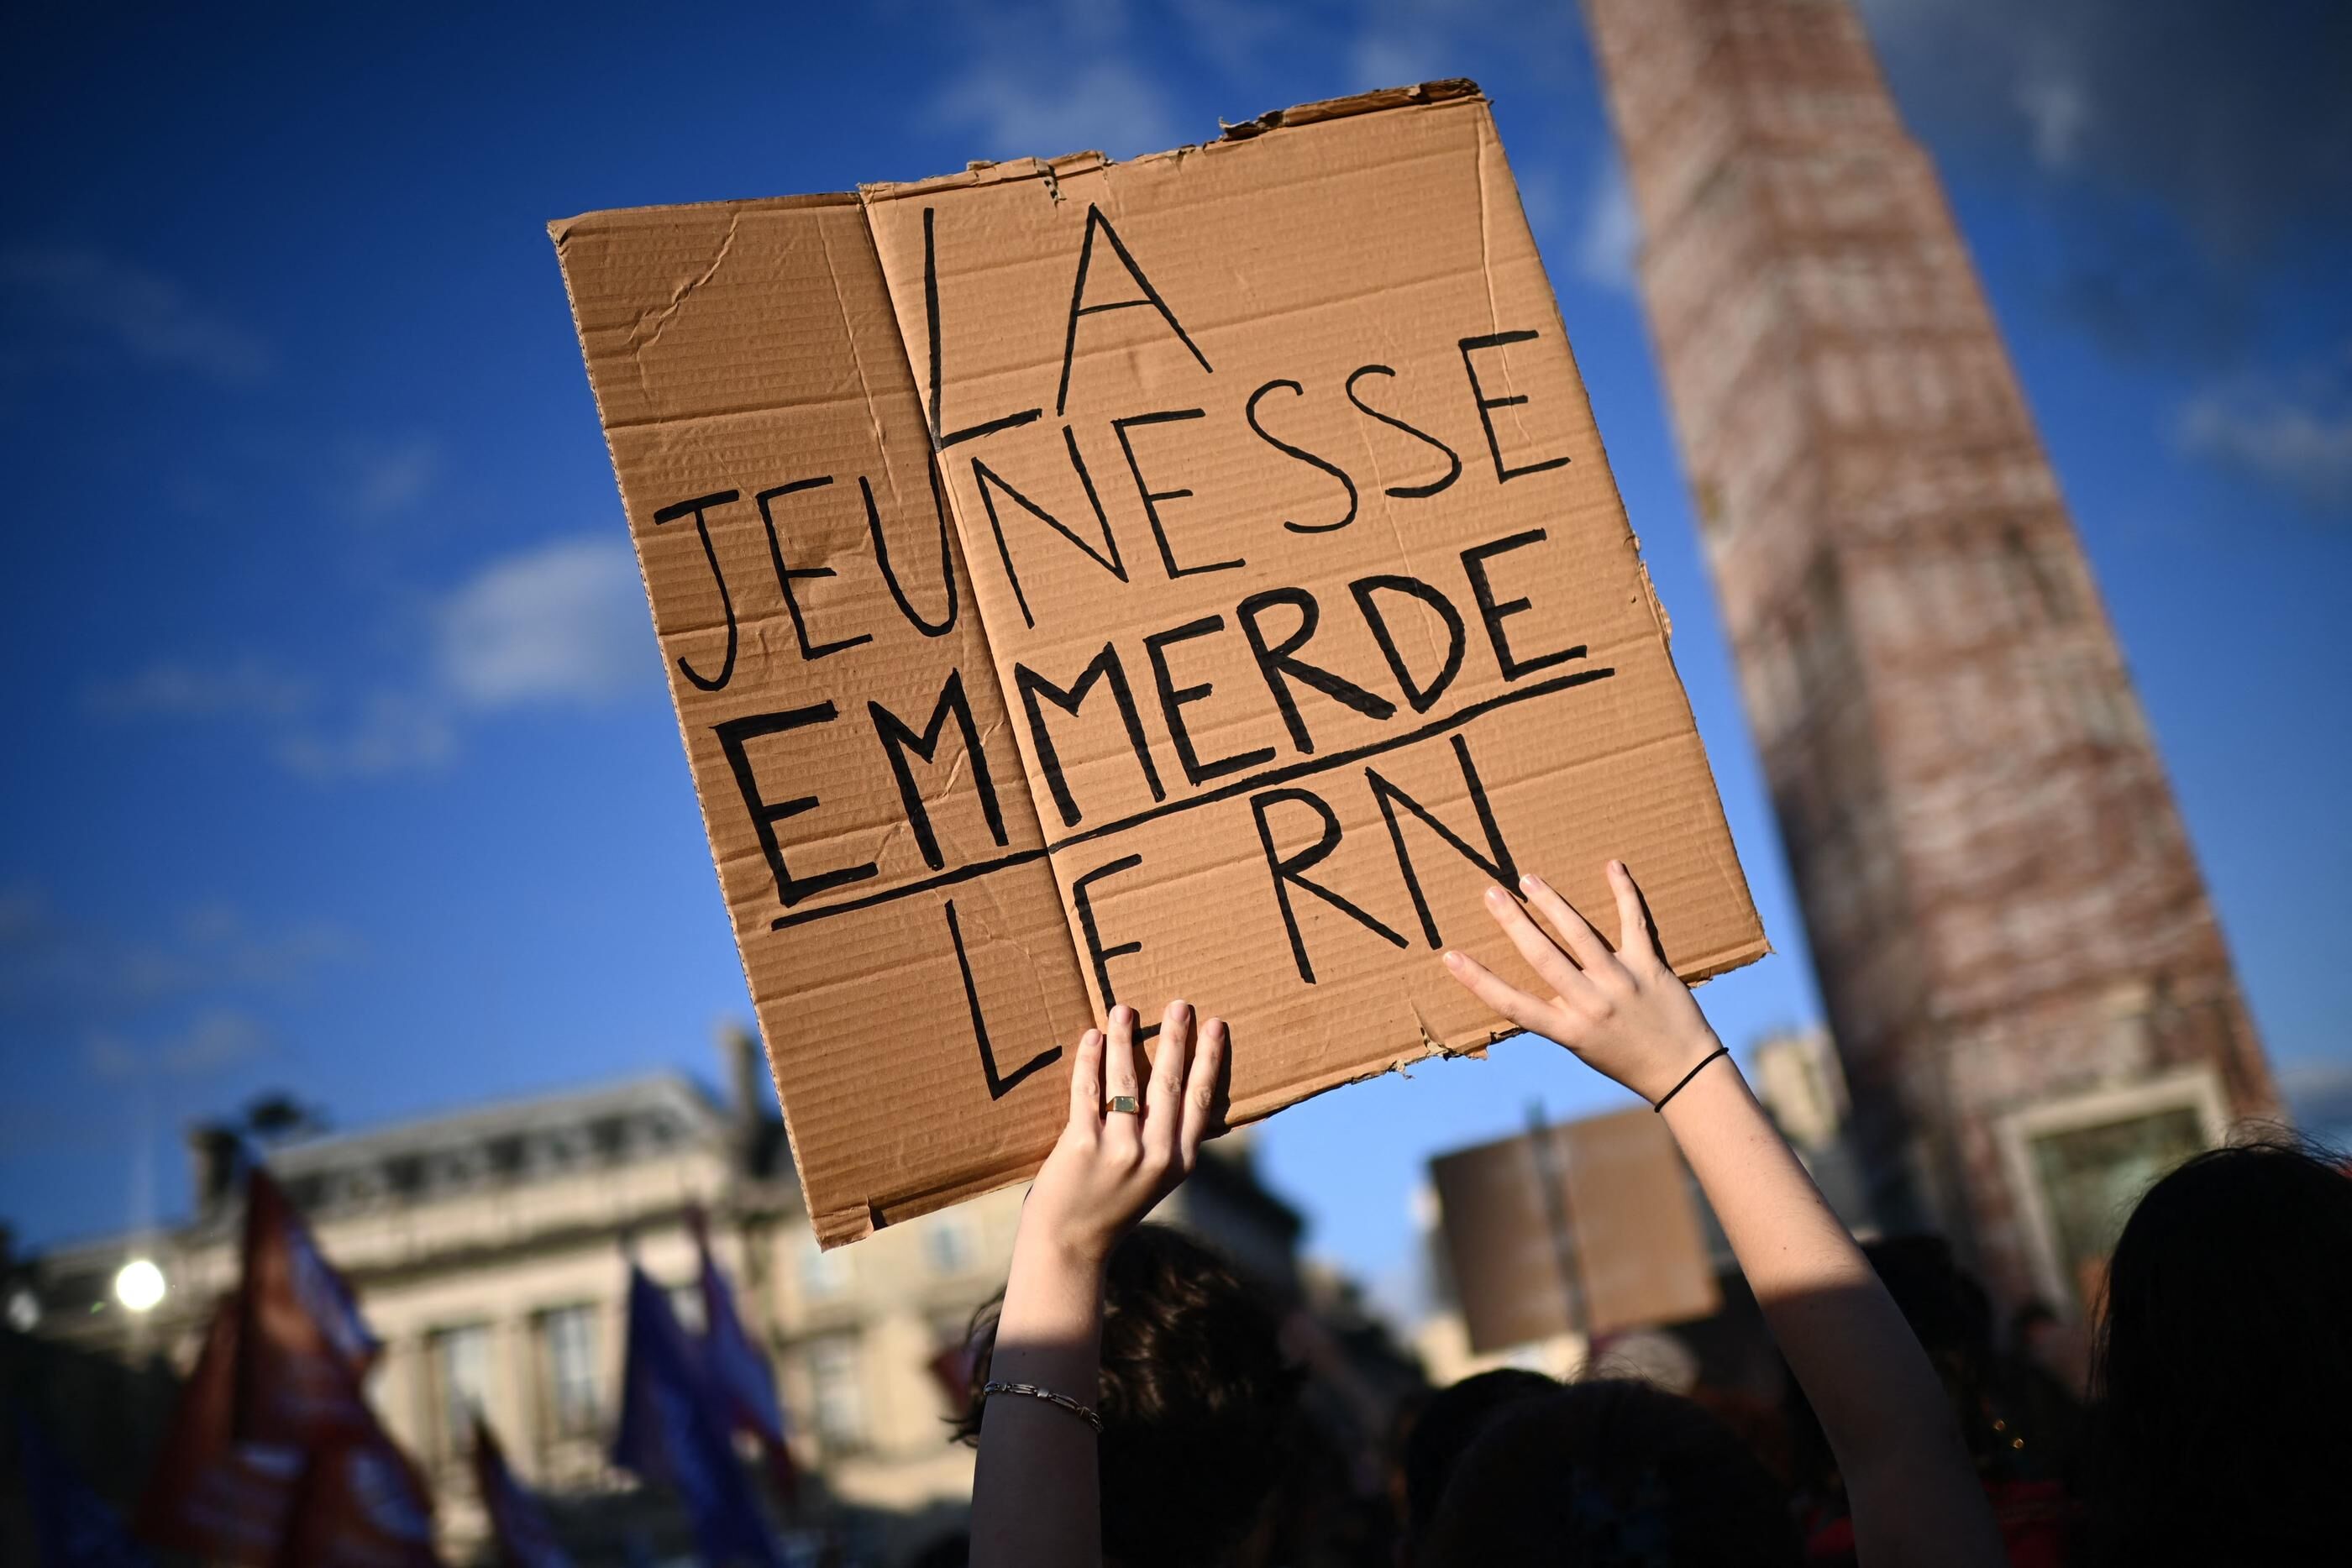 LA
JEUNESSE
EMMERDE
LE RN